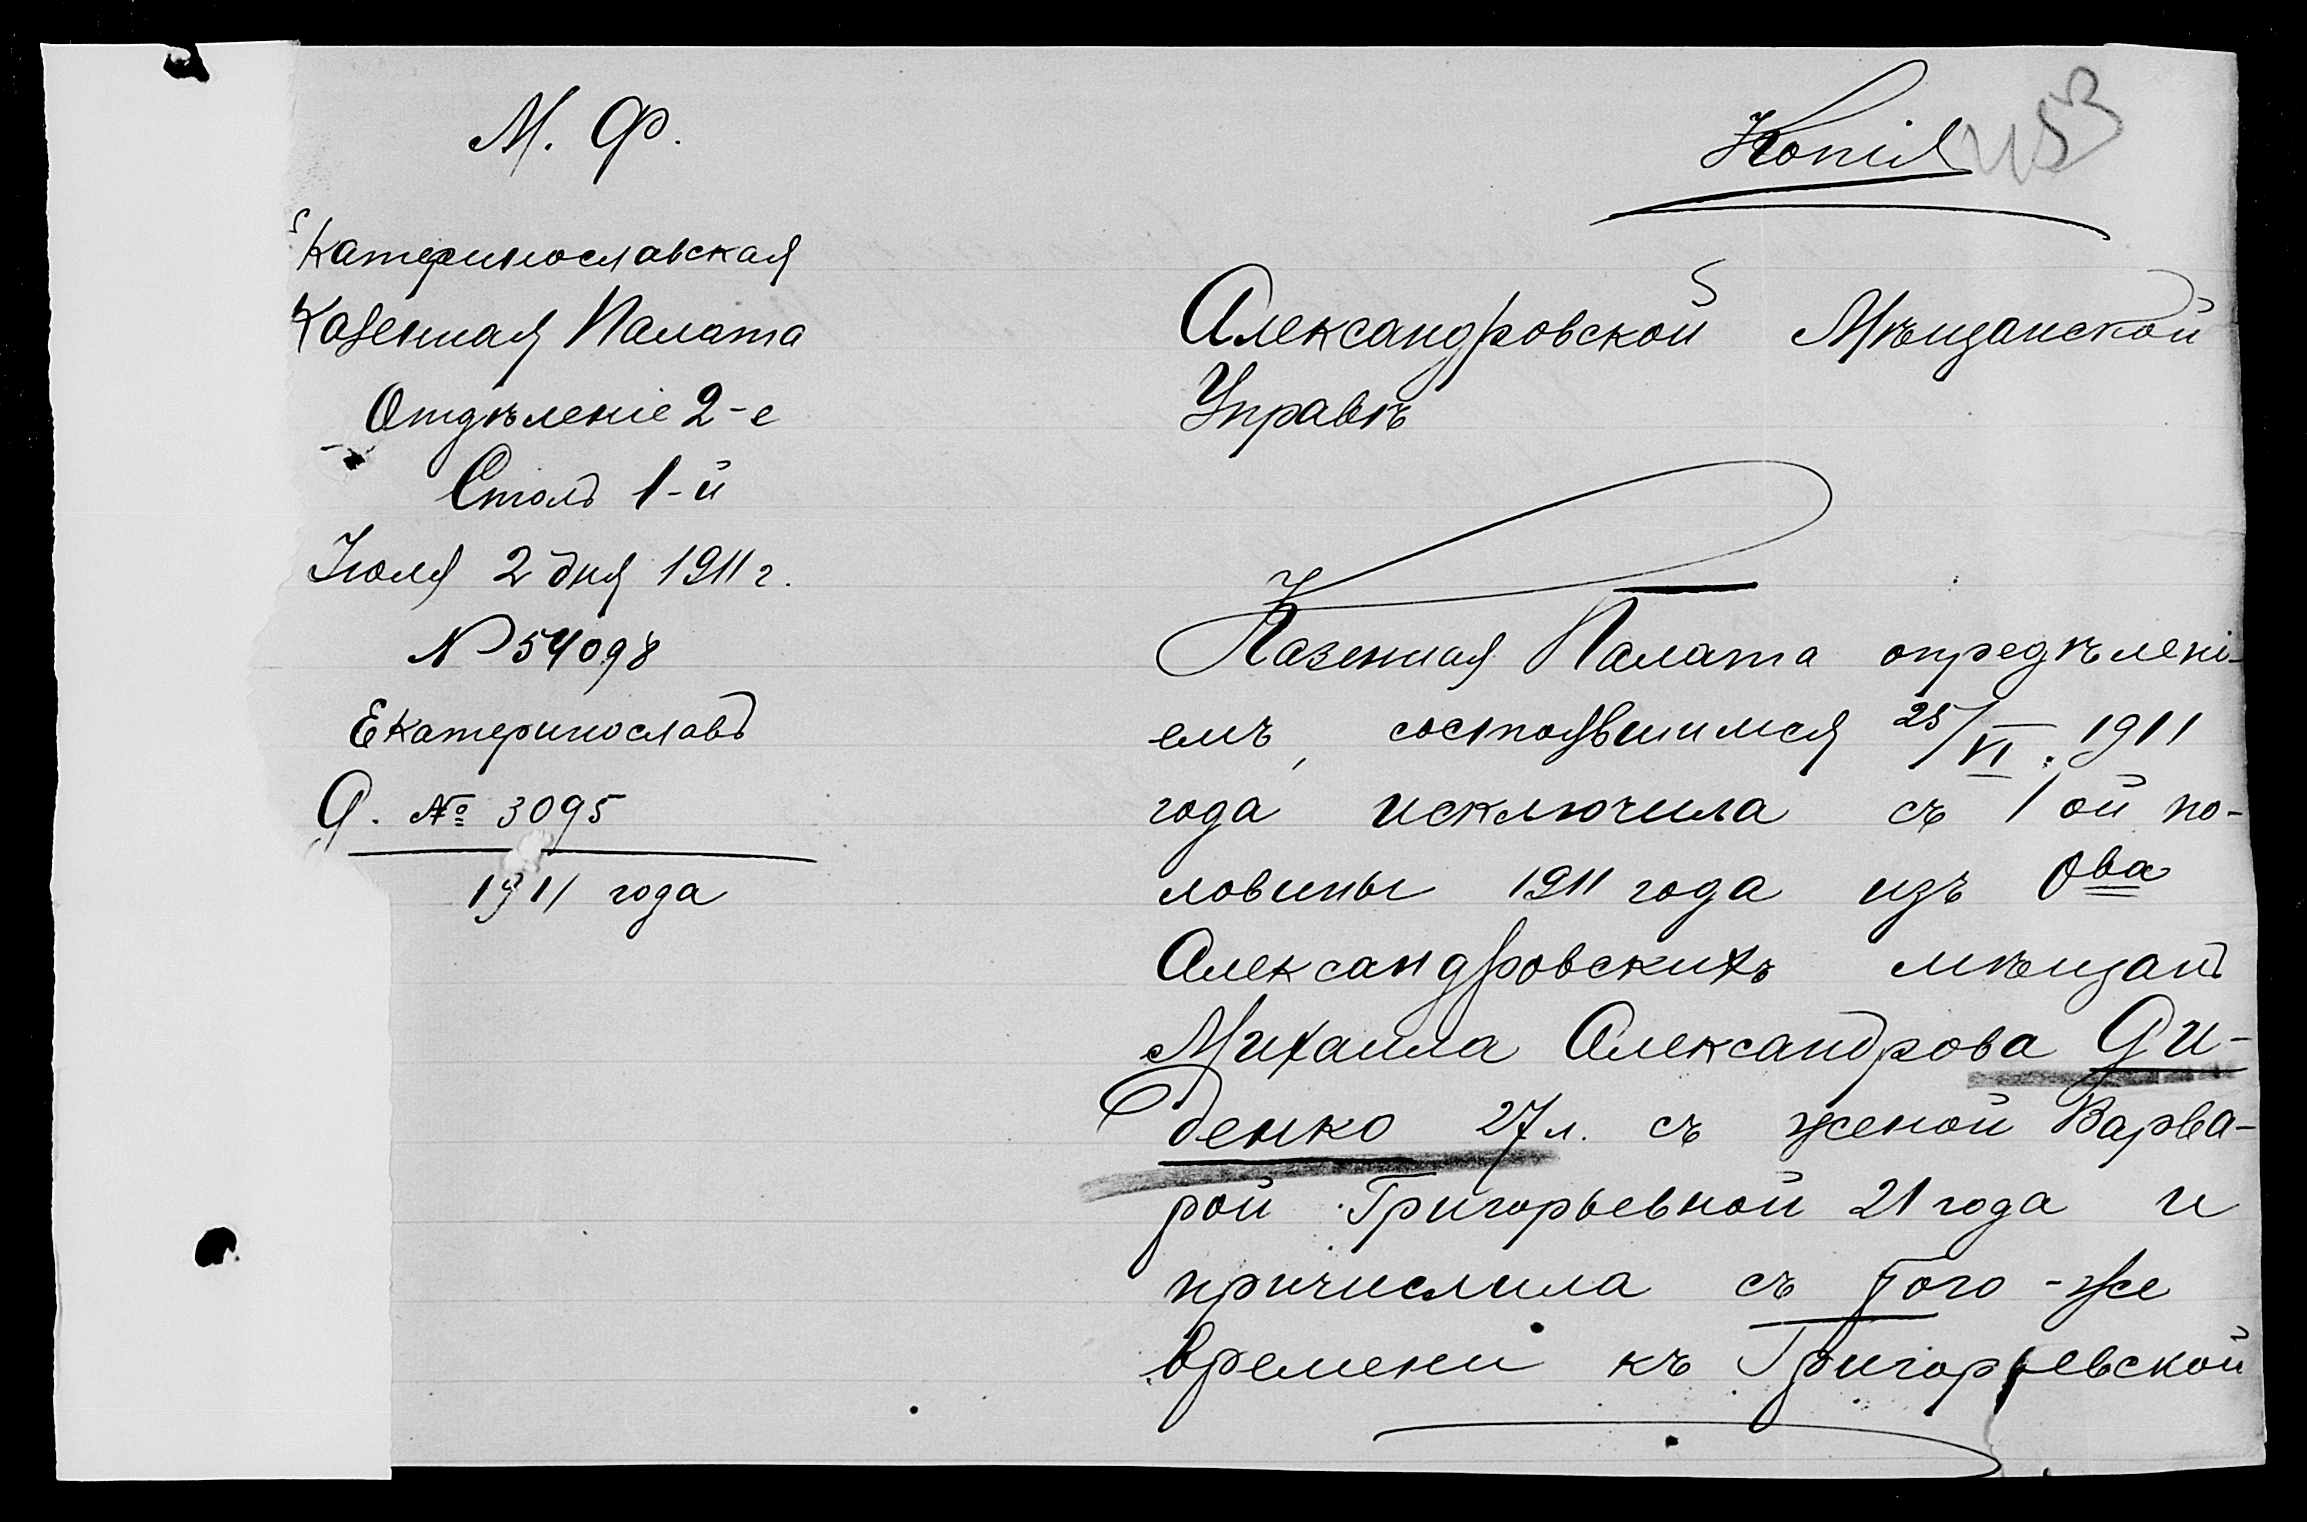 М. Ф.
Екатеринославская
Казенная Палата
Отдѣленіе 2-е
Столъ 1-й
Іюля 2 дня 1911 г.
№ 54098
Екатеринославъ
Д. № 3095
1911 года
Копія
453
Александровской Мѣщанской
Управѣ
Казенная Палата опредѣлені-
емъ, состоявшимся 25/VI. 1911
года исключила съ 1 ой по-
ловины 1911 года изъ Ова
Александровскихъ мѣщанъ
Михаила Александрова Ди-
денко 27 л. съ женой Варва-
рой Григорьевной 21 года и
причислила съ того-же
времени къ Григорьевской